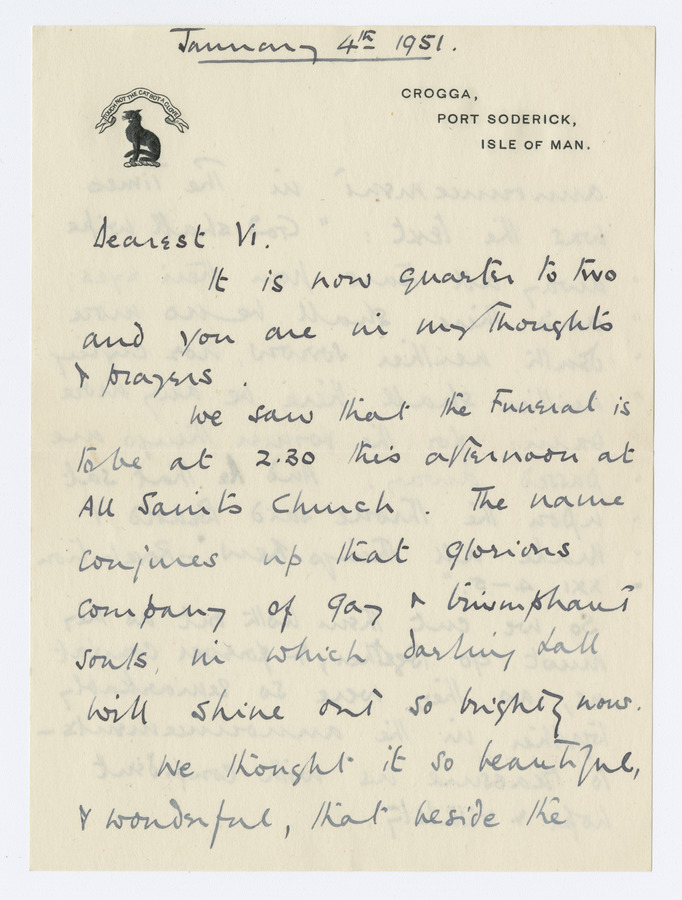 January 4th 1951.
TOUCH NOT THE CAT BOT A GLOVE
CROGGA,
PORT SODERICK,
ISLE OF MAN.
Dearest Vi.
It is now quarter to two
and you are in my thoughts
& prayers.
We saw that the Funeral is
to be at 2.30 this afternoon at
All Saints Church. The name
conjures up that glorious
company of gay & triumphant
souls, in which darling Lall
will shine out so brightly now.
We thought it so beautiful,
& wonderful, that beside the